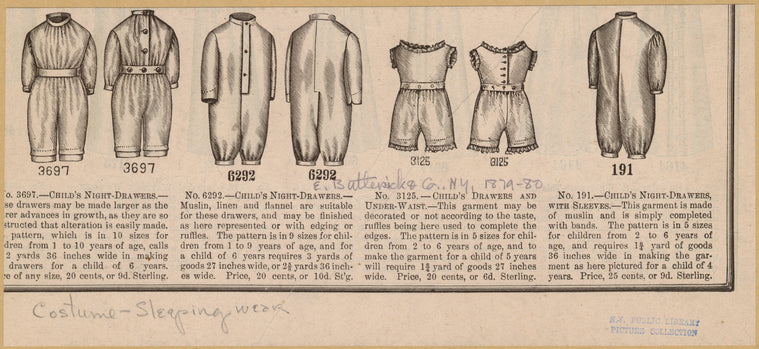 3697
3697
6292
6292
3125
3125
191
E. Butterick & Co., N.Y, 1879-80
o. 3697.—Child's Night-Drawers.—
se drawers may be made larger as the
rer advances in growth, as they are so
structed that alteration is easily made.
pattern, which is in 10 sizes for
dren from 1 to 10 years of age, calls
2 yards 36 inches wide in making
drawers for a child of 6 years.
e of any size, 20 cents, or 9d. Sterling.
No. 6292.—Child's Night-Drawers.—
Muslin, linen and flannel are suitable
for these drawers, and may be finished
as here represented or with edging or
ruffles. The pattern is in 9 sizes for chil-
dren from 1 to 9 years of age, and for
a child of 6 years requires 3 yards of
goods 27 inches wide, or 2⅜ yards 36 inch-
es wide. Price, 20 cents, or 10d. St'g.
No. 3125.—Child's Drawers and
Under-Waist.—This garment may be
decorated or not according to the taste,
ruffles being here used to complete the
edges. The pattern is in 5 sizes for chil-
dren from 2 to 6 years of age, and to
make the garment for a child of 5 years
will require 1¾ yard of goods 27 inches
wide. Price, 20 cents, or 6d. Sterling.
No. 191.—Child's Night-Drawers,
with Sleeves.—This garment is made
of muslin and is simply completed
with bands. The pattern is in 5 sizes
for children from 2 to 6 years of
age, and requires 1¾ yard of goods
36 inches wide in making the gar-
ment as here pictured for a child of 4
years. Price, 25 cents, or 9d. Sterling.
Costume - Sleeping wear
N.Y. PUBLIC LIBRARY
PICTURE COLLECTION